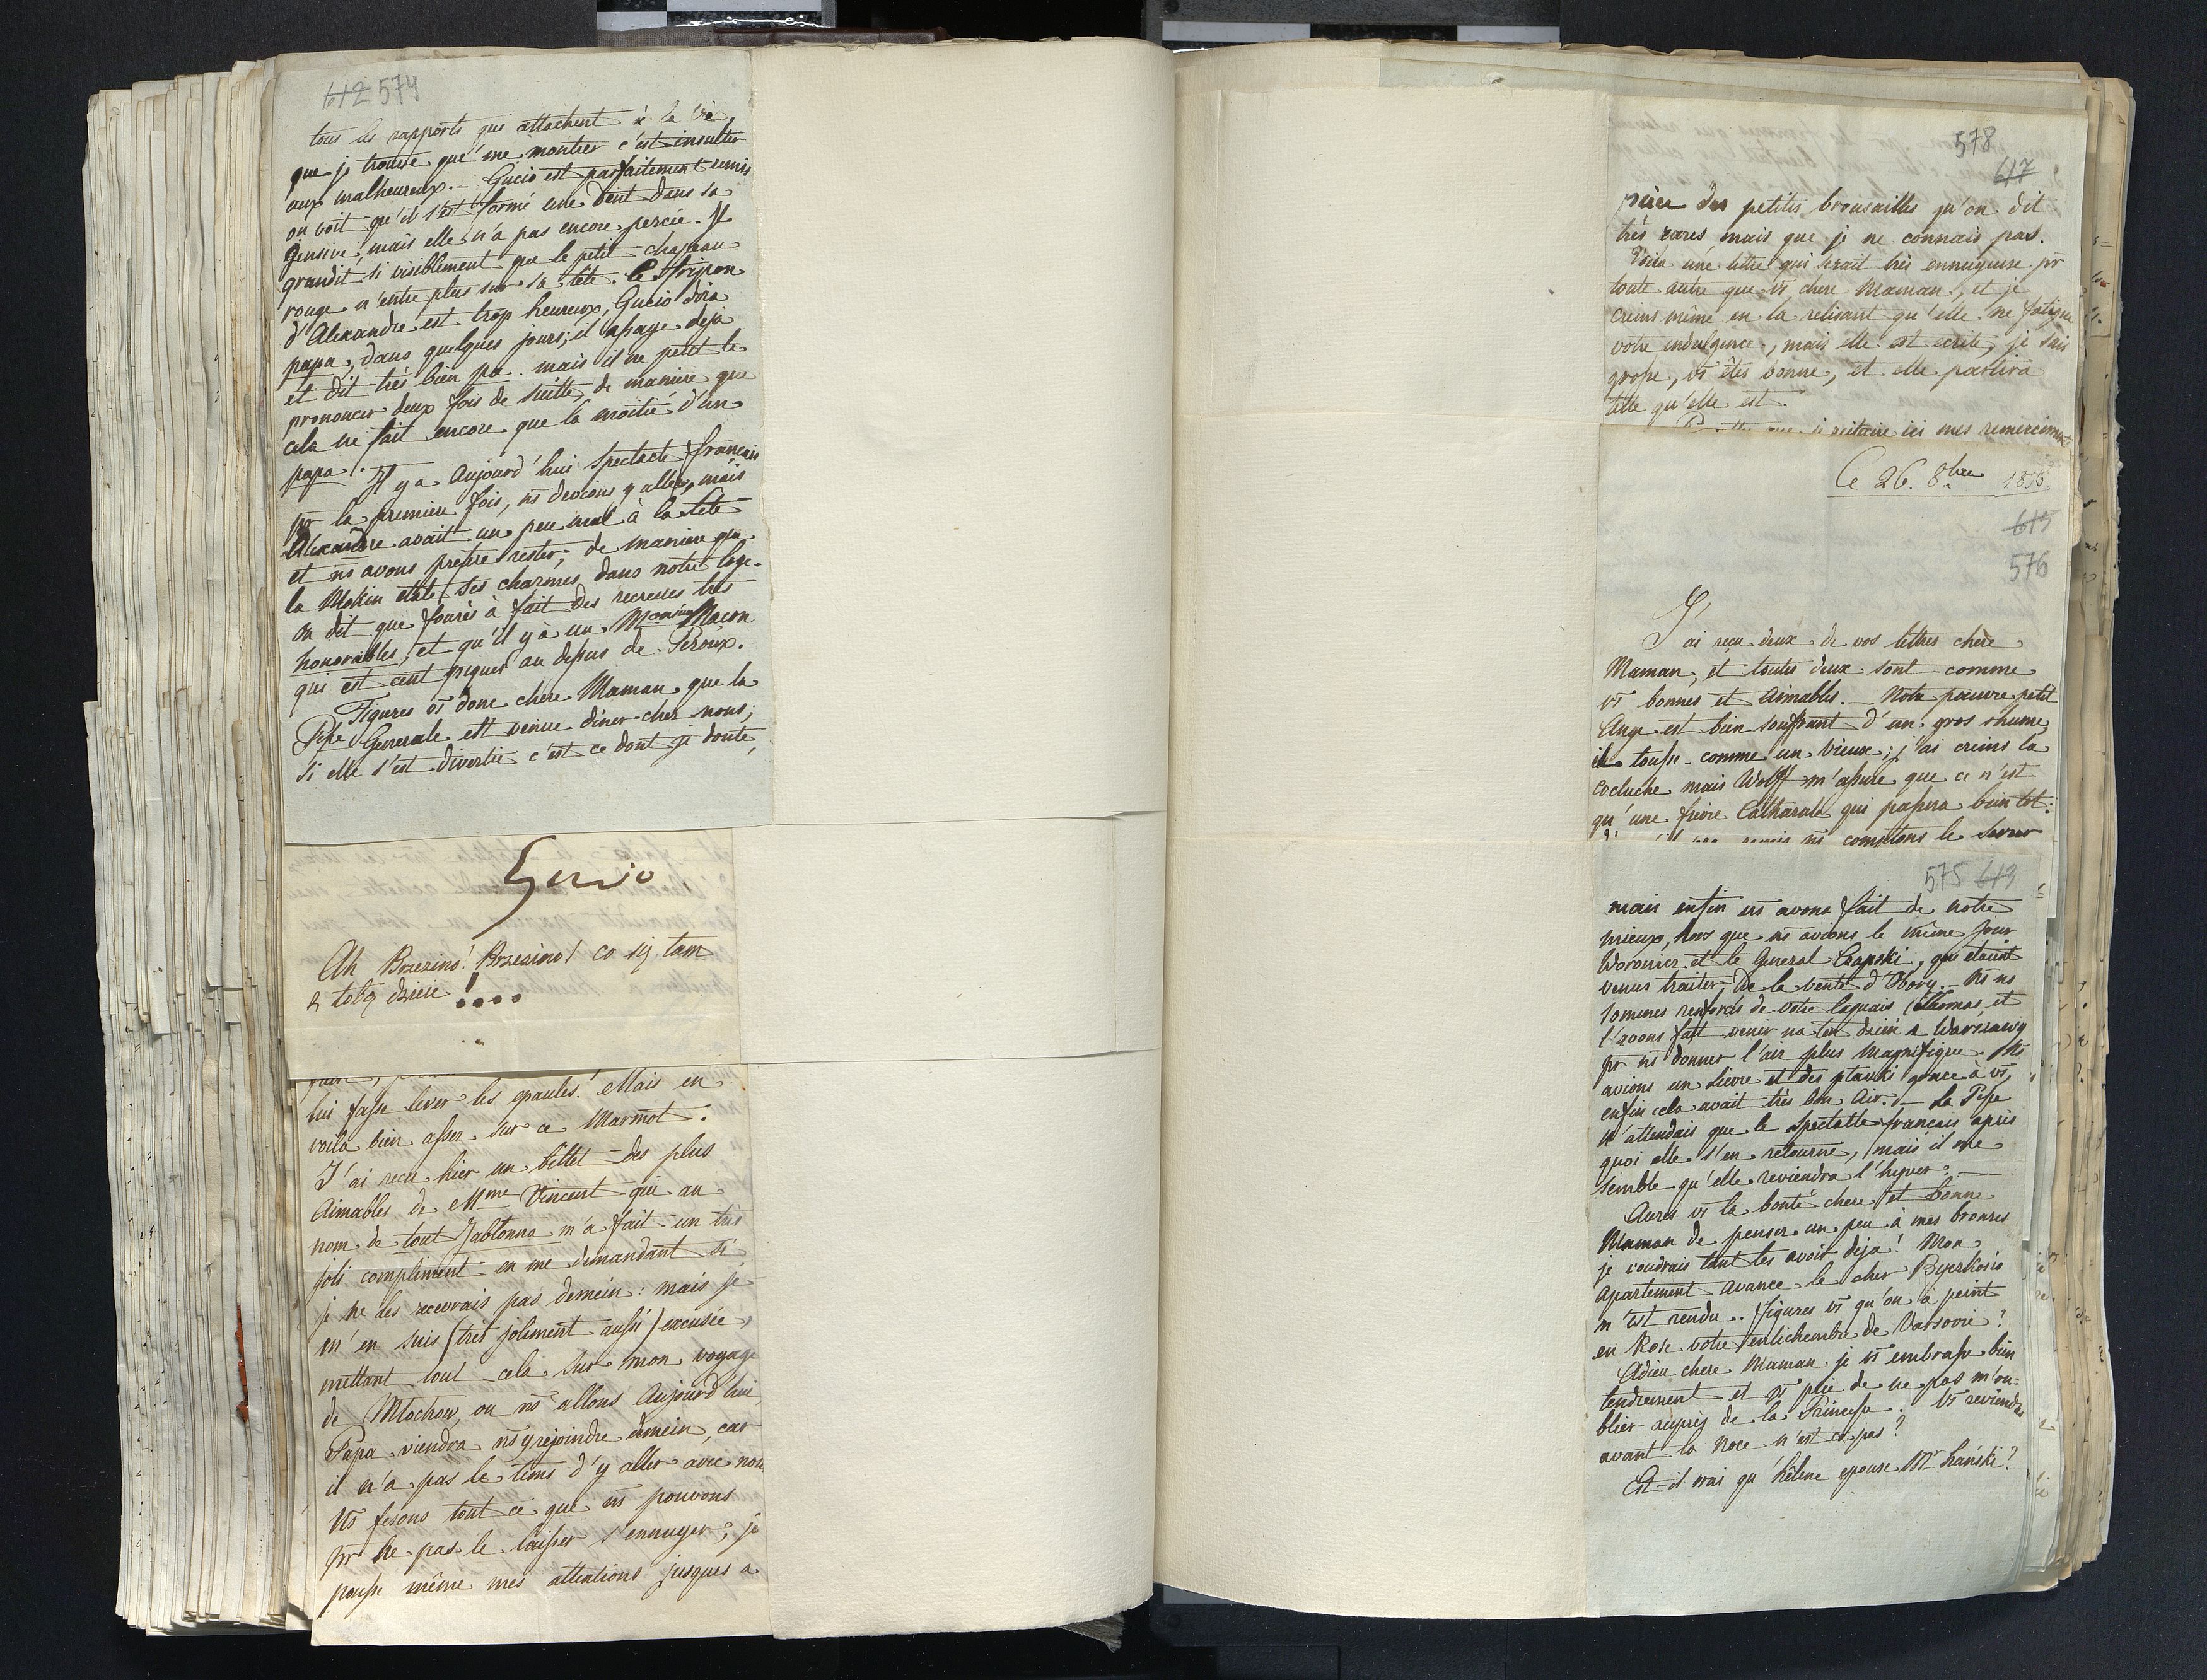 612 574
tous les rapports qui attachent à la vie,
que je trouve que me montrer c'est insulter
aux malheureux. – Gucio est parfaitement remis
on voit qu'il s'est formé une dent dans sa
gensive, mais elle n'a pas encore percée. Il
grandit si visiblement que le petit chapeau
rouge n'entre plus sur sa tete. Le fripon
d'Alexandre est trop heureux, Gucio dira
papa, dans quelques jours; il assaye deja
et dit très bien pa. mais il ne peut le
prononcer deux fois de suitte, de maniere que
cela ne fait encore que la moitié d'un
papa.
Il y a Aujourd'hui Spectacle français
pr la premiere fois, ns devions y aller, mais
Alexandre avait un peu mal à la tete
et ns avons preferé rester, de maniere que
la Mokin etale ses charmes dans notre loge.
on dit que fourès à fait des recreues très
honorables, et qu'il y à un Monsieur Macon
qui est cent piques au dessus de Peroux.
Figures vs donc chere Maman que la
Psse Generale est venue diner chez nous;
si elle s'est divertie c'est ce dont je doute,
Gucio
Ah Brzezino! Brzezino! co się tam
z tobą dzieie !....
lui fasse lever les epaules! Mais en
voila bien asser sur ce Marmot.
J'ai recu hier un billet des plus
Aimables de Mme Vincent qui au
nom de tout Jablonna m'a fait un très
joli compliment en me demandant si
je ne les recevrais pas demein: mais je
m'en suis (très joliment aussi) excusée,
mettant tout cela sur mon voyage
de Mlochow, ou ns allons Aujourd'hui,
Papa viendra ns y rejoindre demein, car
il n'a pas le tems d'y aller avec nous
Ns fesons tout ce que ns pouvons
pr ne pas le laisser s'ennuyer; je
pousse même mes attentions jusques a
578
617
pièce des petites brousailles qu'on dit
très rares mais que je ne connais pas.
Voila une lettre qui serait très ennuyeuse pr
toute autre que vs chere Maman, et je
creins même en la relisant qu'elle ne fatigue
votre indulgence, mais elle est ecrite, je suis
grosse, vs êtes bonne, et elle partira
telle qu'elle est.
ici mes remerciments
Ce 26. 8bre 1806
615
576
J'ai reçu deux de vos lettres chere
Maman, et toutes deux sont comme
vs bonnes et Aimables. – Notre pauvre petit
Ange est bien souffrant d'un gros rhume,
il tousse comme un vieux; j'ai creins la
cocluche mais Wolff m'assure que ce n'est
qu'une fievre Catharale qui passera bientot:
ns comptons le sevrer
575 613
mais enfin ns avons fait de notre
mieux, hors que ns avions le même jour
Woronicz et le General Czapski, qui etaient
venus traiter de la vente d'Obory. – Ns ns
sommes renforcés de votre laquais Thomas, et
l'avons fait venir na ten dzień z Warszawy
pr ns donner l'air plus magnifique. Ns
avions un Lievre et des ptaszki grace à vs,
enfin cela avait très bon Air. – La Psse
n'attendais que le spectacle francais après
quoi elle s'en retourne, mais il me
semble qu'elle reviendra l'hyver. –
Aures vs la bonté chere et bonne
Maman de penser un peu à mes bronzes
je voudrais tant les avoir deja! Mon
Apartement avance le cher
m'est rendu. figures vs qu'on à peint
en Rose votre entichembre de Varsovie?
Adieu chere Maman je vs embrasse bien
tendrement et vs prie de ne pas m'ou=
blier auprès de la Princesse. Vs reviendrez
avant la Noce n'est ce pas?
Est-il vrai qu'hélène epouse Mr Lański?